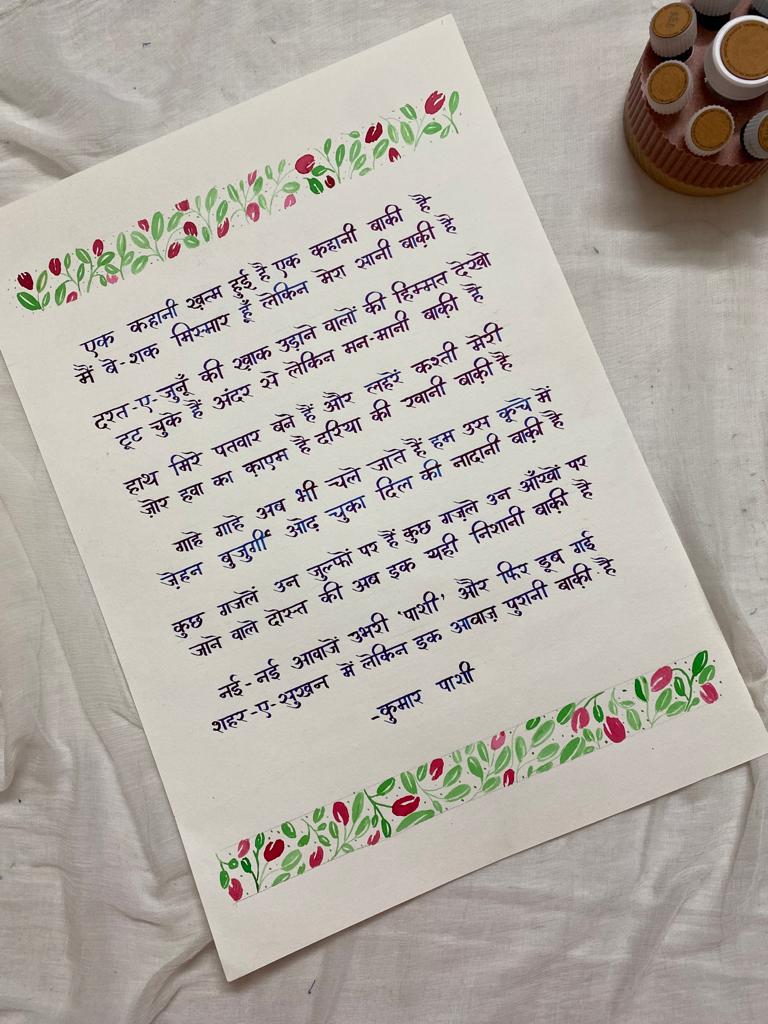 एक कहानी ख़त्म हुई है एक कहानी बाक़ी है
मैं बे-शक मिस्मार हूँ लेकिन मेरा सानी बाक़ी है
दश्त-ए-जुनूँ की ख़ाक उड़ाने वालों की हिम्मत देखो
टूट चुके हैं अंदर से लेकिन मन-मानी बाक़ी है
हाथ मिरे पतवार बने हैं और लहरें कश्ती मेरी
ज़ोर हवा का क़ाएम है दरिया की रवानी बाक़ी है
गाहे गाहे अब भी चले जाते हैं हम उस कूचे में
ज़ेहन बुज़ुर्गी ओढ़ चुका दिल की नादानी बाक़ी है
कुछ ग़ज़लें उन ज़ुल्फ़ों पर हैं कुछ ग़ज़लें उन आँखों पर
जाने वाले दोस्त की अब इक यही निशानी बाक़ी है
नई-नई आवाज़ें उभरी 'पाशी' और फिर डूब गई
शहर-ए-सुख़न में लेकिन इक आवाज़ पुरानी बाक़ी है
-कुमार पाशी